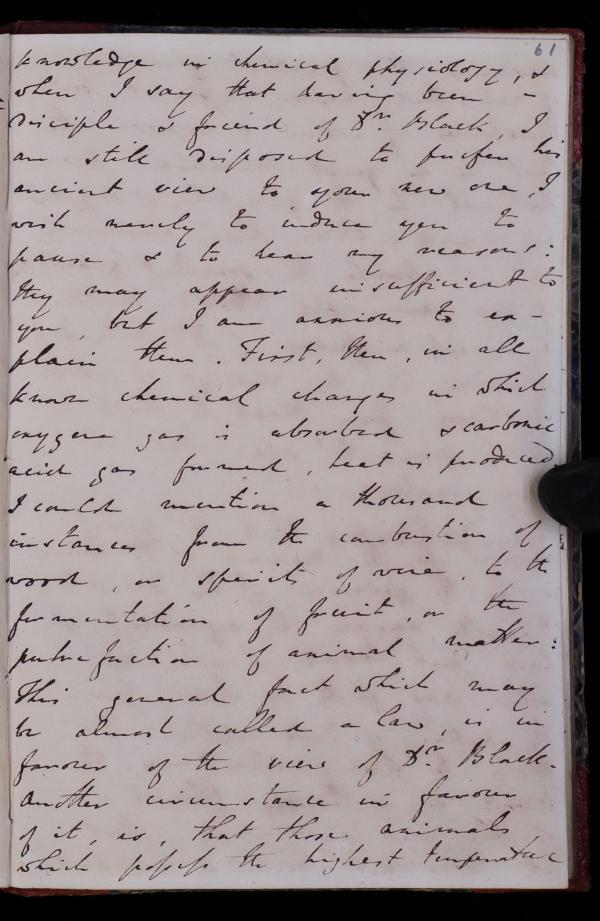 61
knowledge in chemical physiology, &
when I say that having been a
disciple & friend of Dr. Black, I
am still disposed to prefer his
ancient view to your new one, I
wish merely to induce you to
pause & to hear my reasons:
they may appear insufficient to
you, but I am anxious to ex-
plain them. First, then, in all
known chemical changes in which
oxygene gas is absorbed & carbonic
acid gas formed, heat is produced
I could mention a thousand
instances from the combustion of
wood, or spirits of wine, to the
fermentation of fruit, or the
putrefaction of animal matter:
this general fact which may
be almost called a law, is in
favour of the view of Dr. Black.
another circumstance in favour
of it, is, that those animals
which possess the highest temperature